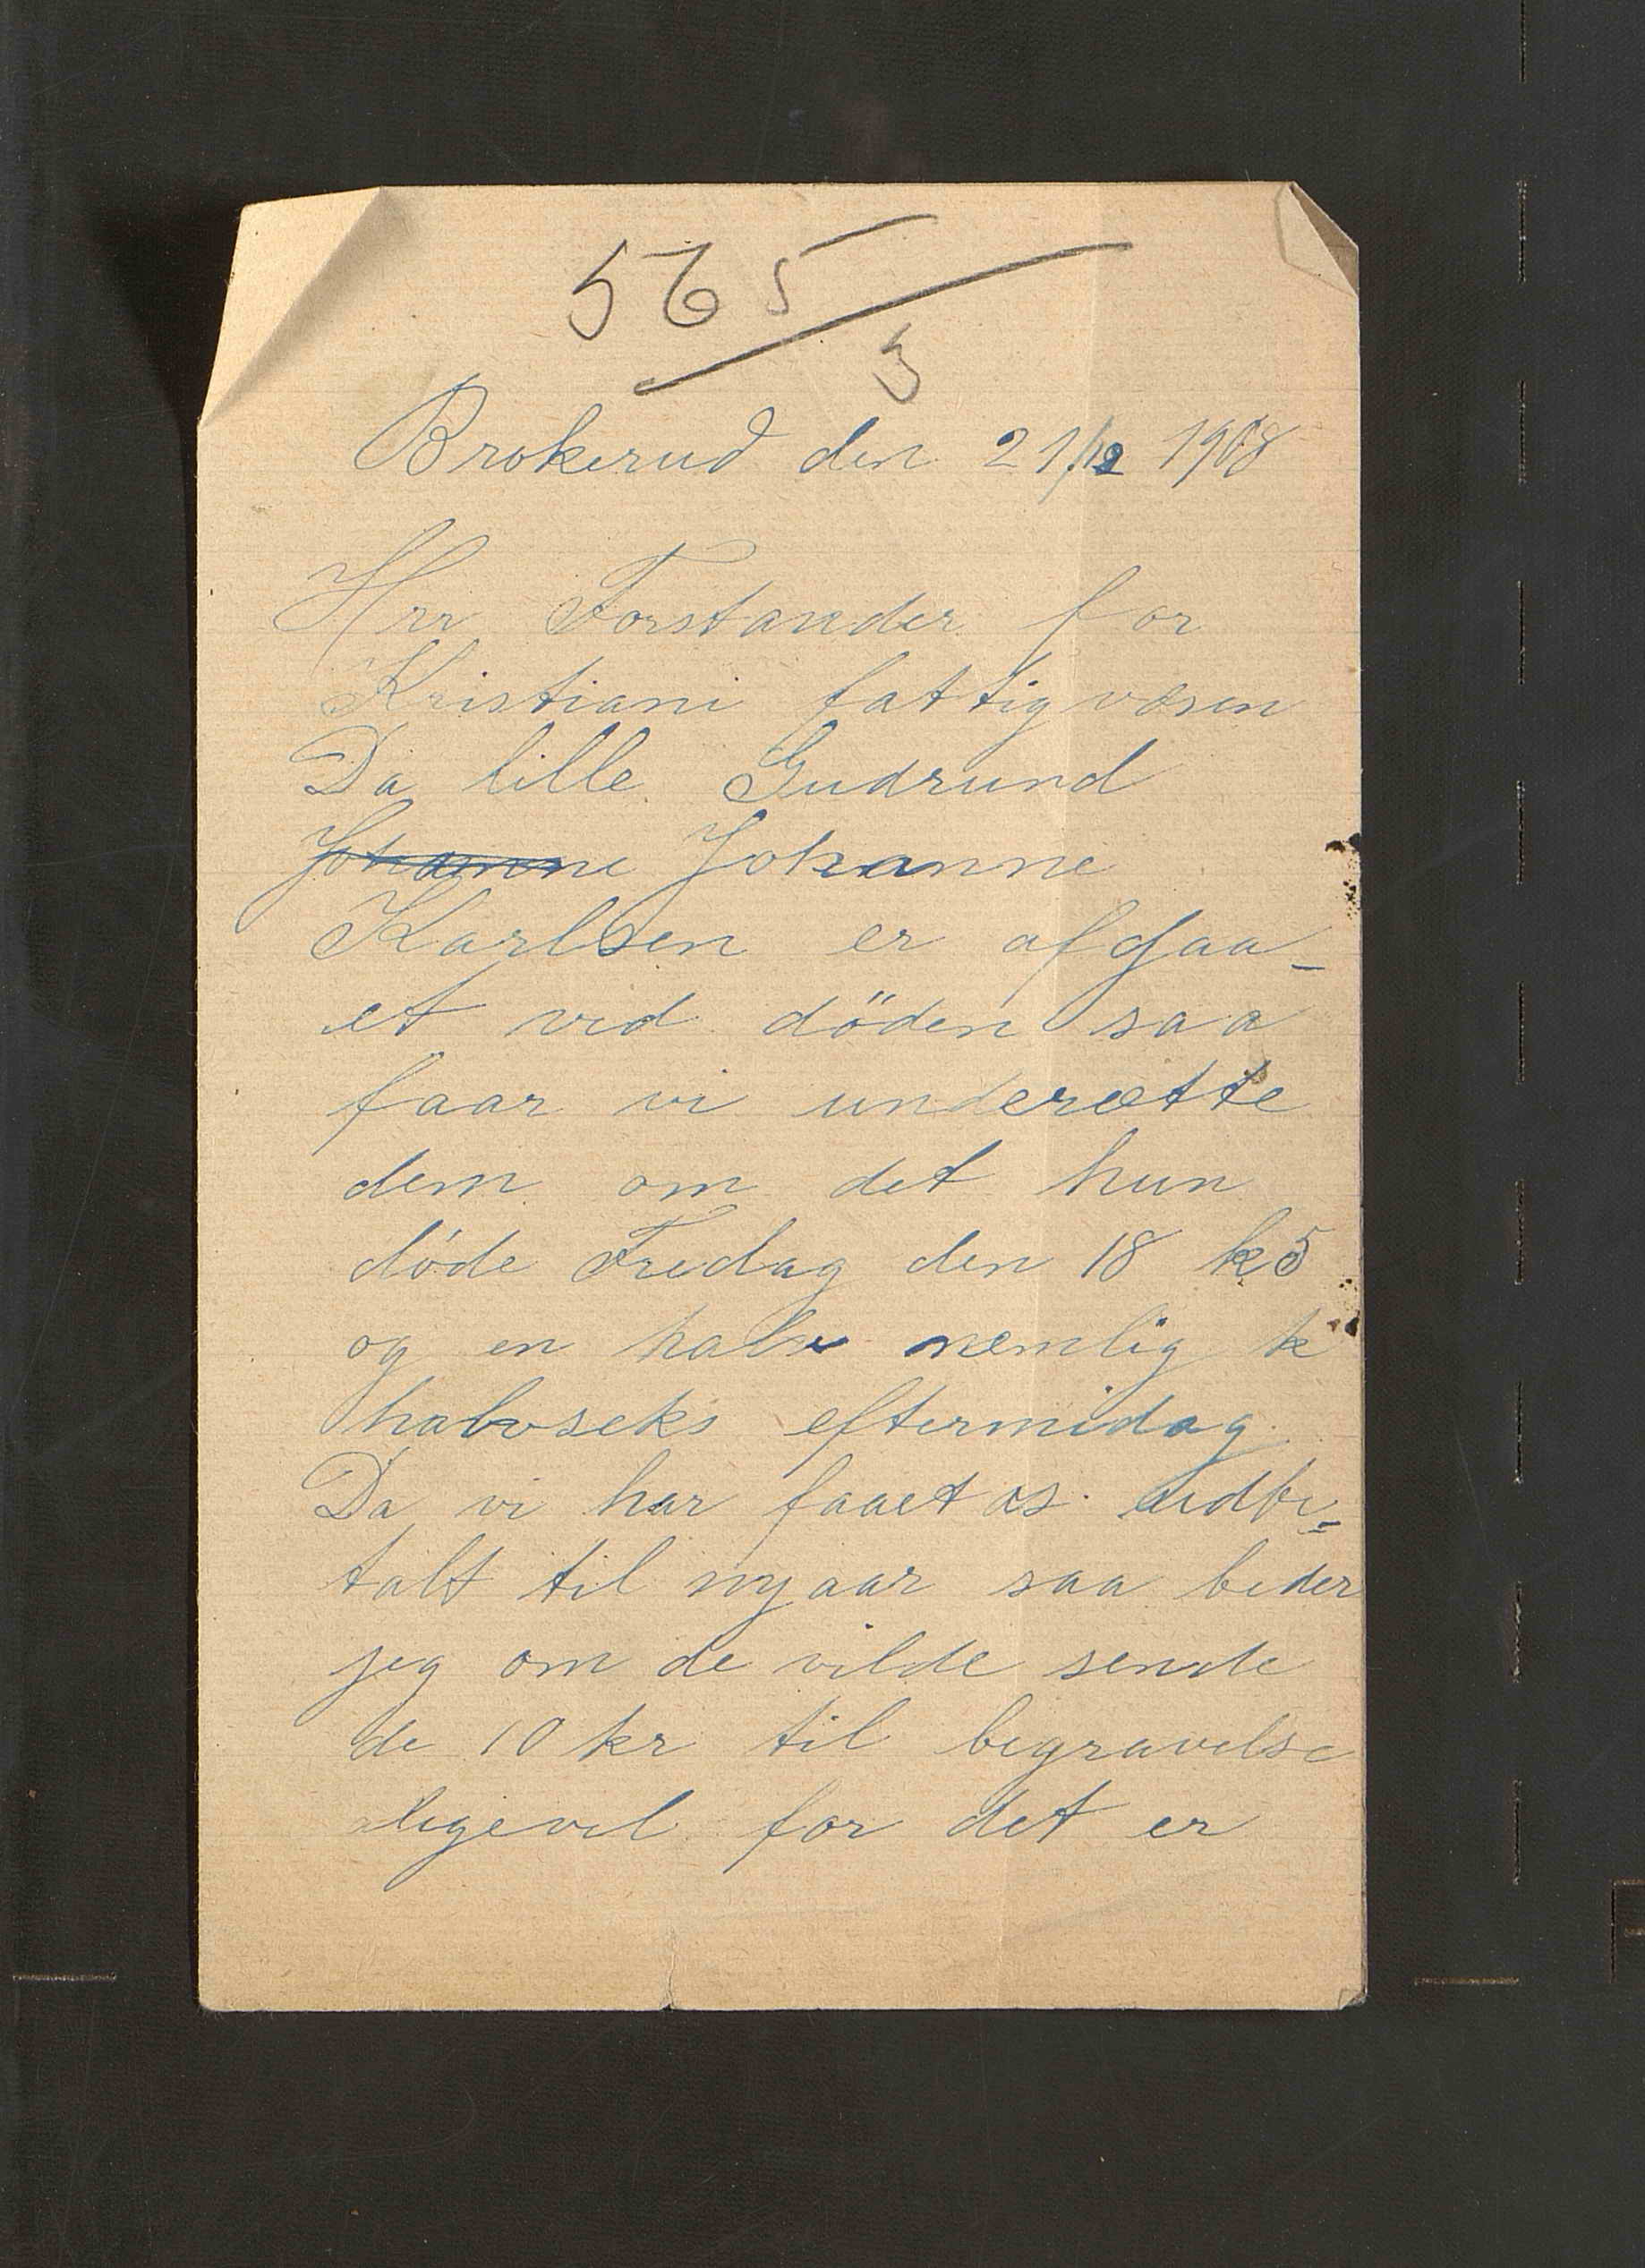 565/3
Brokerud den 21/12 1908
Hrr Forstander for
Kristiani fattigvæsen
Da lille Gudrund
Johanne Johanne
Karlsen er afgaa-
et ved döden saa
faar vi underætte
dem om det hun
döde Fredag den 18 k 5
og en halv nemlig k
halvseks eftermidag.
Da vi har faaet os udbe-
talt til nyaar saa beder
jeg om de vilde sende
de 10 kr til begravelse
ligevel for det er